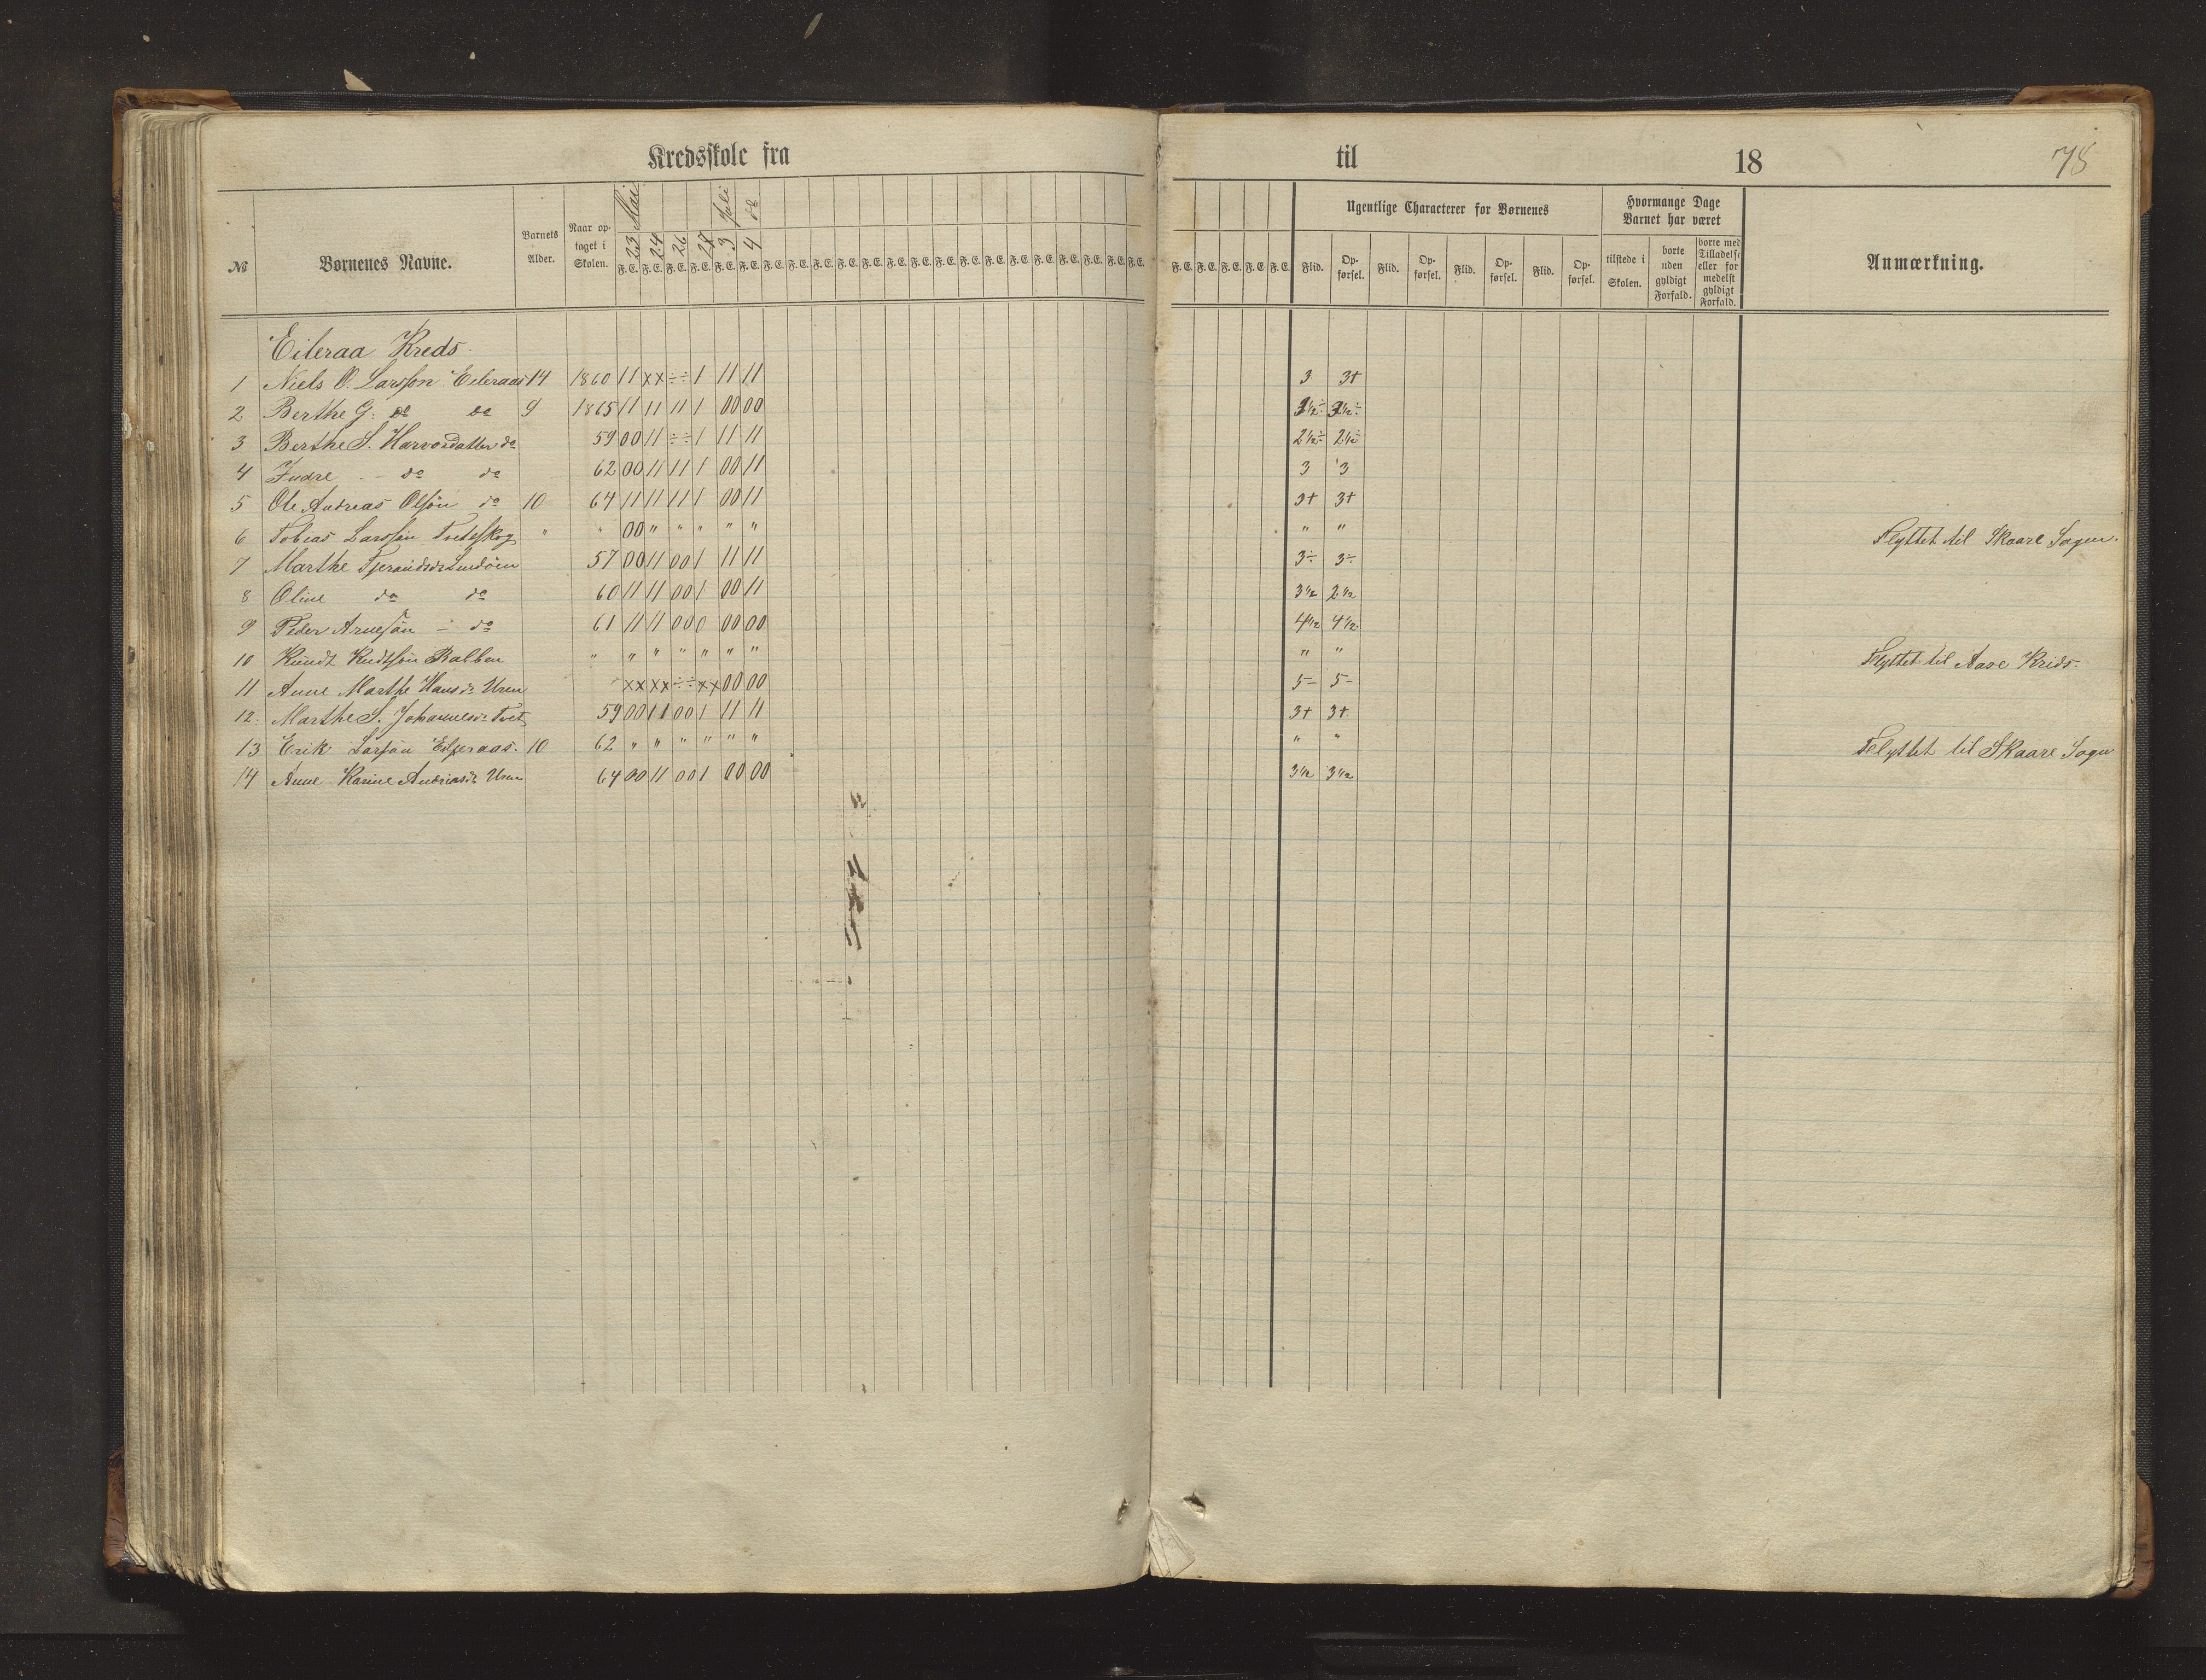 Kredsskole fra til 18 78
№ Børnenes Navne. Barnets Alder. Naar op- taget i Skolen. 23 Mai 24 26 28 3 Juli 4 do F. E. F. E. F. E. F. E. F. E. F. E. F. E. F. E. F. E. F. E. F. E. F. E. F. E. F. E. F. E. F. E. F. E. F. E. F. E. F. E. F. E. F. E. F. E. F. E. F. E. F. E. Ugentlige Characterer for Børnenes Flid. Op- førsel. Flid. Op- førsel. Flid. Op- førsel. Flid. Op- førsel. Hvormange Dage Barnet har været tilstede i Skolen. borte uden gyldigt Forfald. borte med Tilladelse eller for medelst gyldigt Forfald. Anmærkning.
Eileraa Kreds.
1 Niels O. Larsson Eileraas 14 1860 11 xx ÷÷ 1 11 11 3 3+
2 Berthe G. do do 9 1865 11 11 11 1 00 00 3½÷ 3½÷
3 Berthe S. Harvordatter do 59 00 11 ÷÷ 1 11 11 2½÷ 2½÷
4 do do 62 00 11 11 1 00 11 3 3
5 Ole Andreas Olsön do 10 64 11 11 11 1 00 11 3+ 3+
6 Tobias Larssön Tveteskog " " 00 " " " " " " " Flyttet til Skaare Sogn.
7 Marthe 57 00 11 00 1 11 11 3÷ 3÷
8 Oline do do 60 11 11 00 1 00 11 3½ 2½
9 Peder Arnesön - do 61 11 11 00 0 00 00 4½ 4½
10 Knudt Kudtsön " " " " " " " " " Flyttet til Aare Kreds.
11 Anne Marthe Hansdr Uren " xx xx ÷÷ xx 00 00 5- 5-
12. Marthe S. Johannesdr Tvet 59 00 11 00 1 11 11 3+ 3+
13 Erik Larsön Eilperaas. 10 62 " " " " " " " " Flyttet til Skaare Sogn
14 Anne Karine Andreasdr Uren 64 00 11 00 1 00 00 3½ 3½